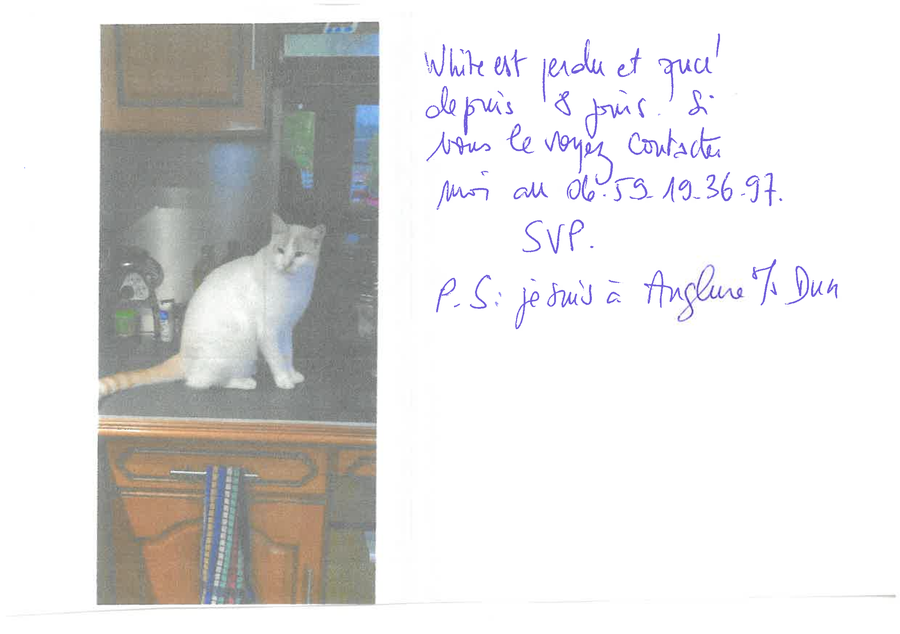 White est perdu et pucé
depuis 8 jours. Si
vous le voyez contacter
moi au 06.59.19.36.97.
SVP.
P.S: je suis à Anglure s/s Dun